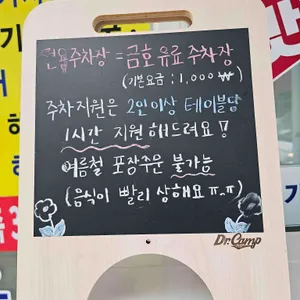 전용주차장 = 금호 유료 주차장
(기본요금 : 1,000₩)
주차지원은 2인이상 테이블당
1시간 지원해드려요!
여름철 포장주문 불가능
(음식이 빨리 상해요 ㅠ.ㅠ)
Dr.Camp